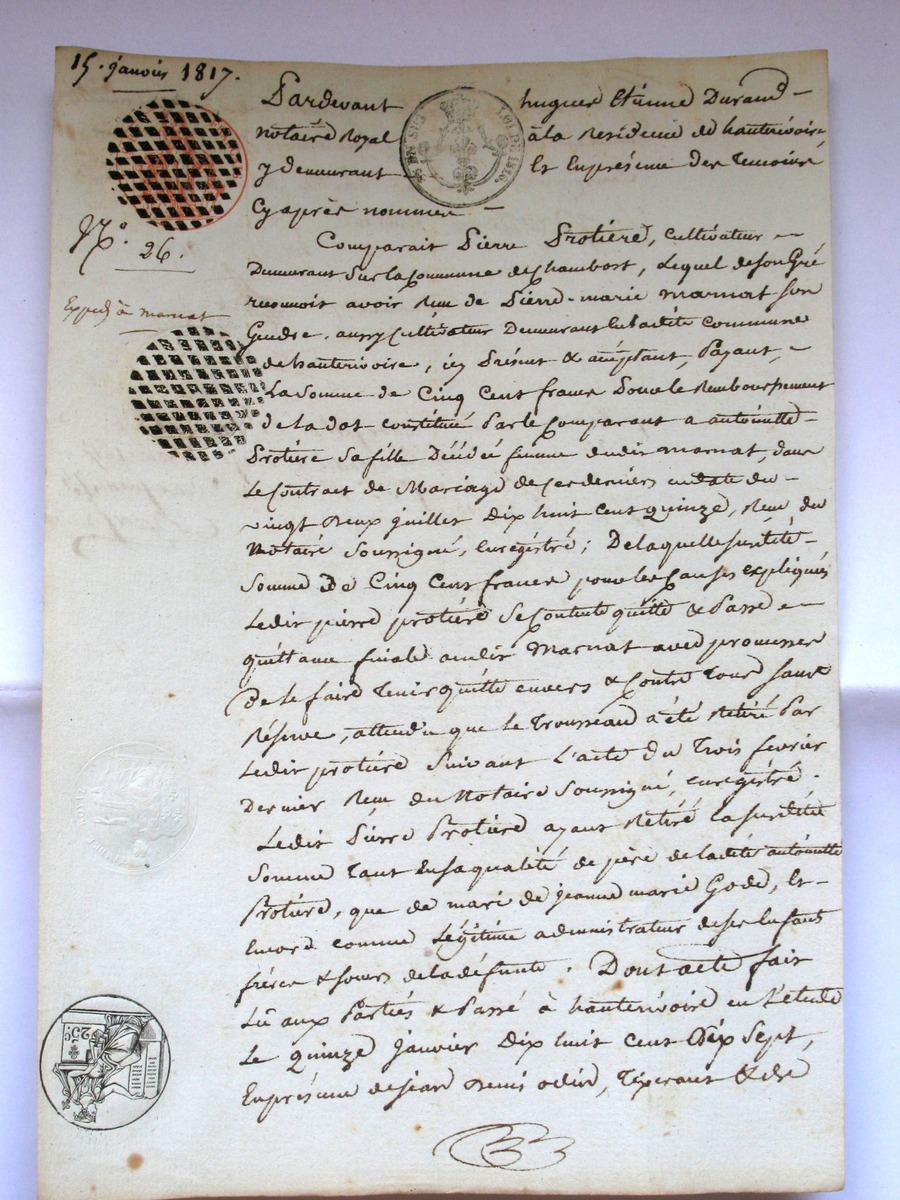 15. janvier 1817.
Pardevant hugues Etienne Durand
notaire Royal à la Residence de hauterivoire
y demeurant Et En présence des Temoins
Cy après nommés
N.o 26.
Expéd. à marnat
Comparait Pierre Protiere, Cultivateur
Demeurant Sur la Commune de Chambost, Lequel de son Gré
reconnoit avoir Reçu de Pierre-marie Marnat son
Gendre, aussy Cultivateur Demeurant en la dite Commune
de hauterivoire, icy Présent & acceptant, Payant,
La Somme de Cinq Cent francs Pour le Remboursement
de la dot Constitué Par le Comparant a antoinette
Protiere Sa fille Décédée femme dudit Marnat, dans
Le Contract de Mariage de ces derniers en date du
vingt deux juillet Dix huit Cent Quinze, Reçu du
Notaire Soussigné, Enregistré; De laquelle susdite
Somme De Cinq Cent francs pour les Causes expliquées
Ledit pierre protiere Se Contente quitte & Passe
quittance finale audit Marnat avec promesse
De le faire Tenir quitte envers & Contre Tous sans
Réserve, attendu que le Trousseau a été Retiré Par
Ledit protiere Suivant L'acte du Trois fevrier
Dernier Reçu du Notaire Soussigné, enregistré.
Ledit Pierre Protiere ayant Retiré la susdite
Somme Tant En sa qualité de père de ladite antoinette
Protiere, que de mari de jeanne marie Gode, Et
Encore comme Légitime administrateur de ses Enfants
frères & soeurs de la défunte. Dont acte fait
Lû aux Parties & Passé à hauterivoire en L'etude
Le quinze Janvier Dix huit Cent Dix Sept,
En présence de jean Remi odin, Tisserant & de
LOI DE 1816.
25c.